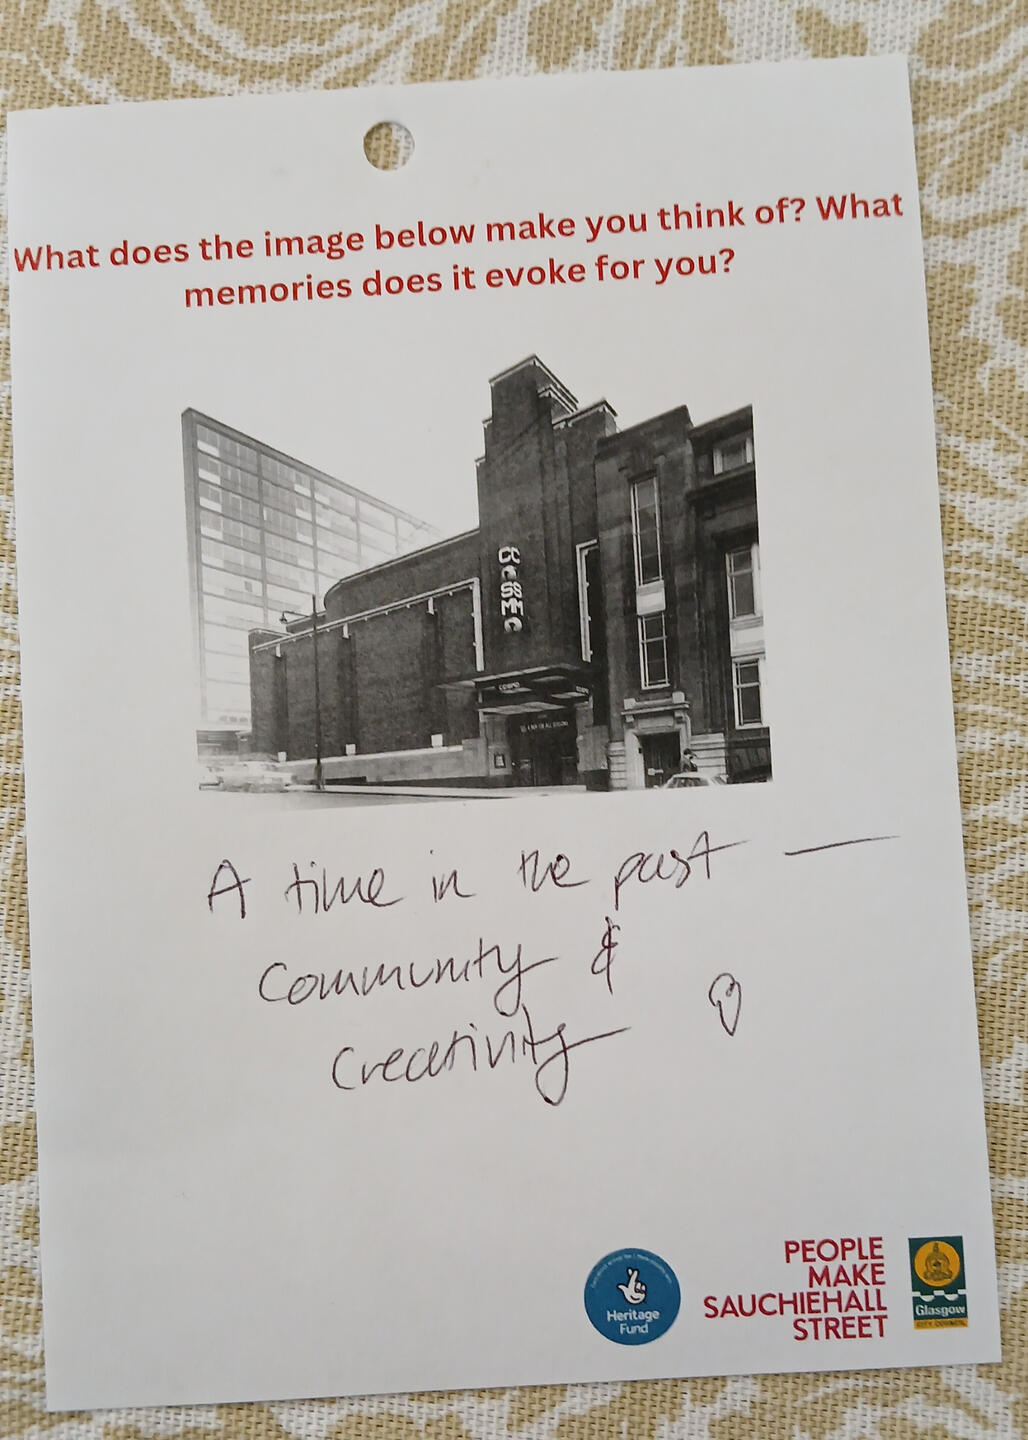 What does the image below make you think of? What
memories does it evoke for you?
CC
O
SS
MM
O
COSMO
A time in the past —
Community &
Creativity
Heritage
Fund
PEOPLE
MAKE
SAUCHIEHALL
STREET
Glasgow
CITY COUNCIL